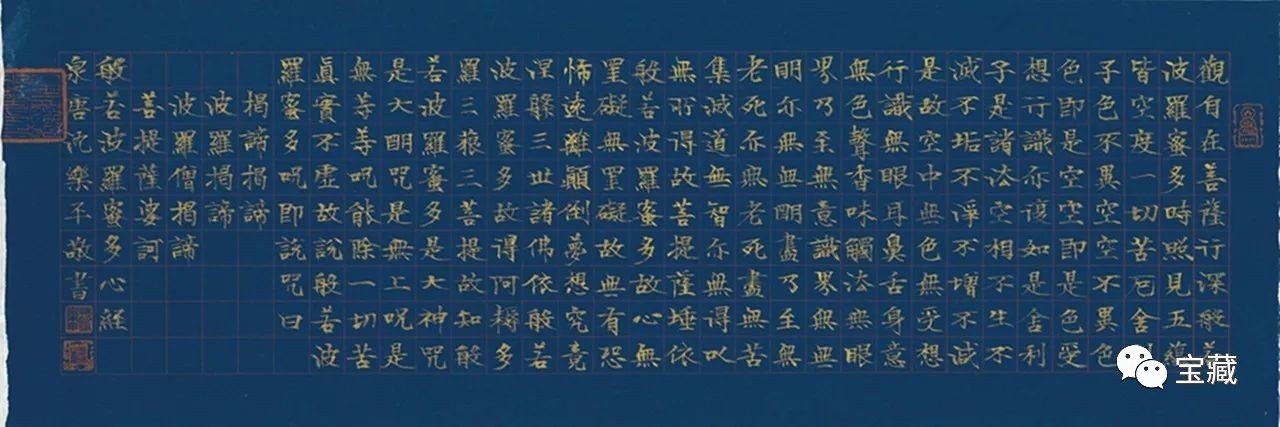 觀自在菩薩行深般若
波羅蜜多時照見五蘊
皆空度一切苦厄舍利
子色不異空空不異色
色即是空空即是色受
想行識亦復如是舍利
子是諸法空相不生不
滅不垢不淨不增不減
是故空中無色無受想
行識無眼耳鼻舌身意
無色聲香味觸法無眼
界乃至無意識界無無
明亦無無明盡乃至無
老死亦無老死盡無苦
集滅道無智亦無得以
無所得故菩提薩埵依
般若波羅蜜多故心無
罣礙無罣礙故無有恐
怖遠離顛倒夢想究竟
涅槃三世諸佛依般若
波羅蜜多故得阿耨多
羅三藐三菩提故知般
若波羅蜜多是大神咒
是大明咒是無上咒是
無等等咒能除一切苦
真實不虛故說般若波
羅蜜多咒即說咒曰
揭諦揭諦
波羅揭諦
波羅僧揭諦
菩提薩婆訶
般若波羅蜜多心經
泉唐沈樂平敬書
宝藏